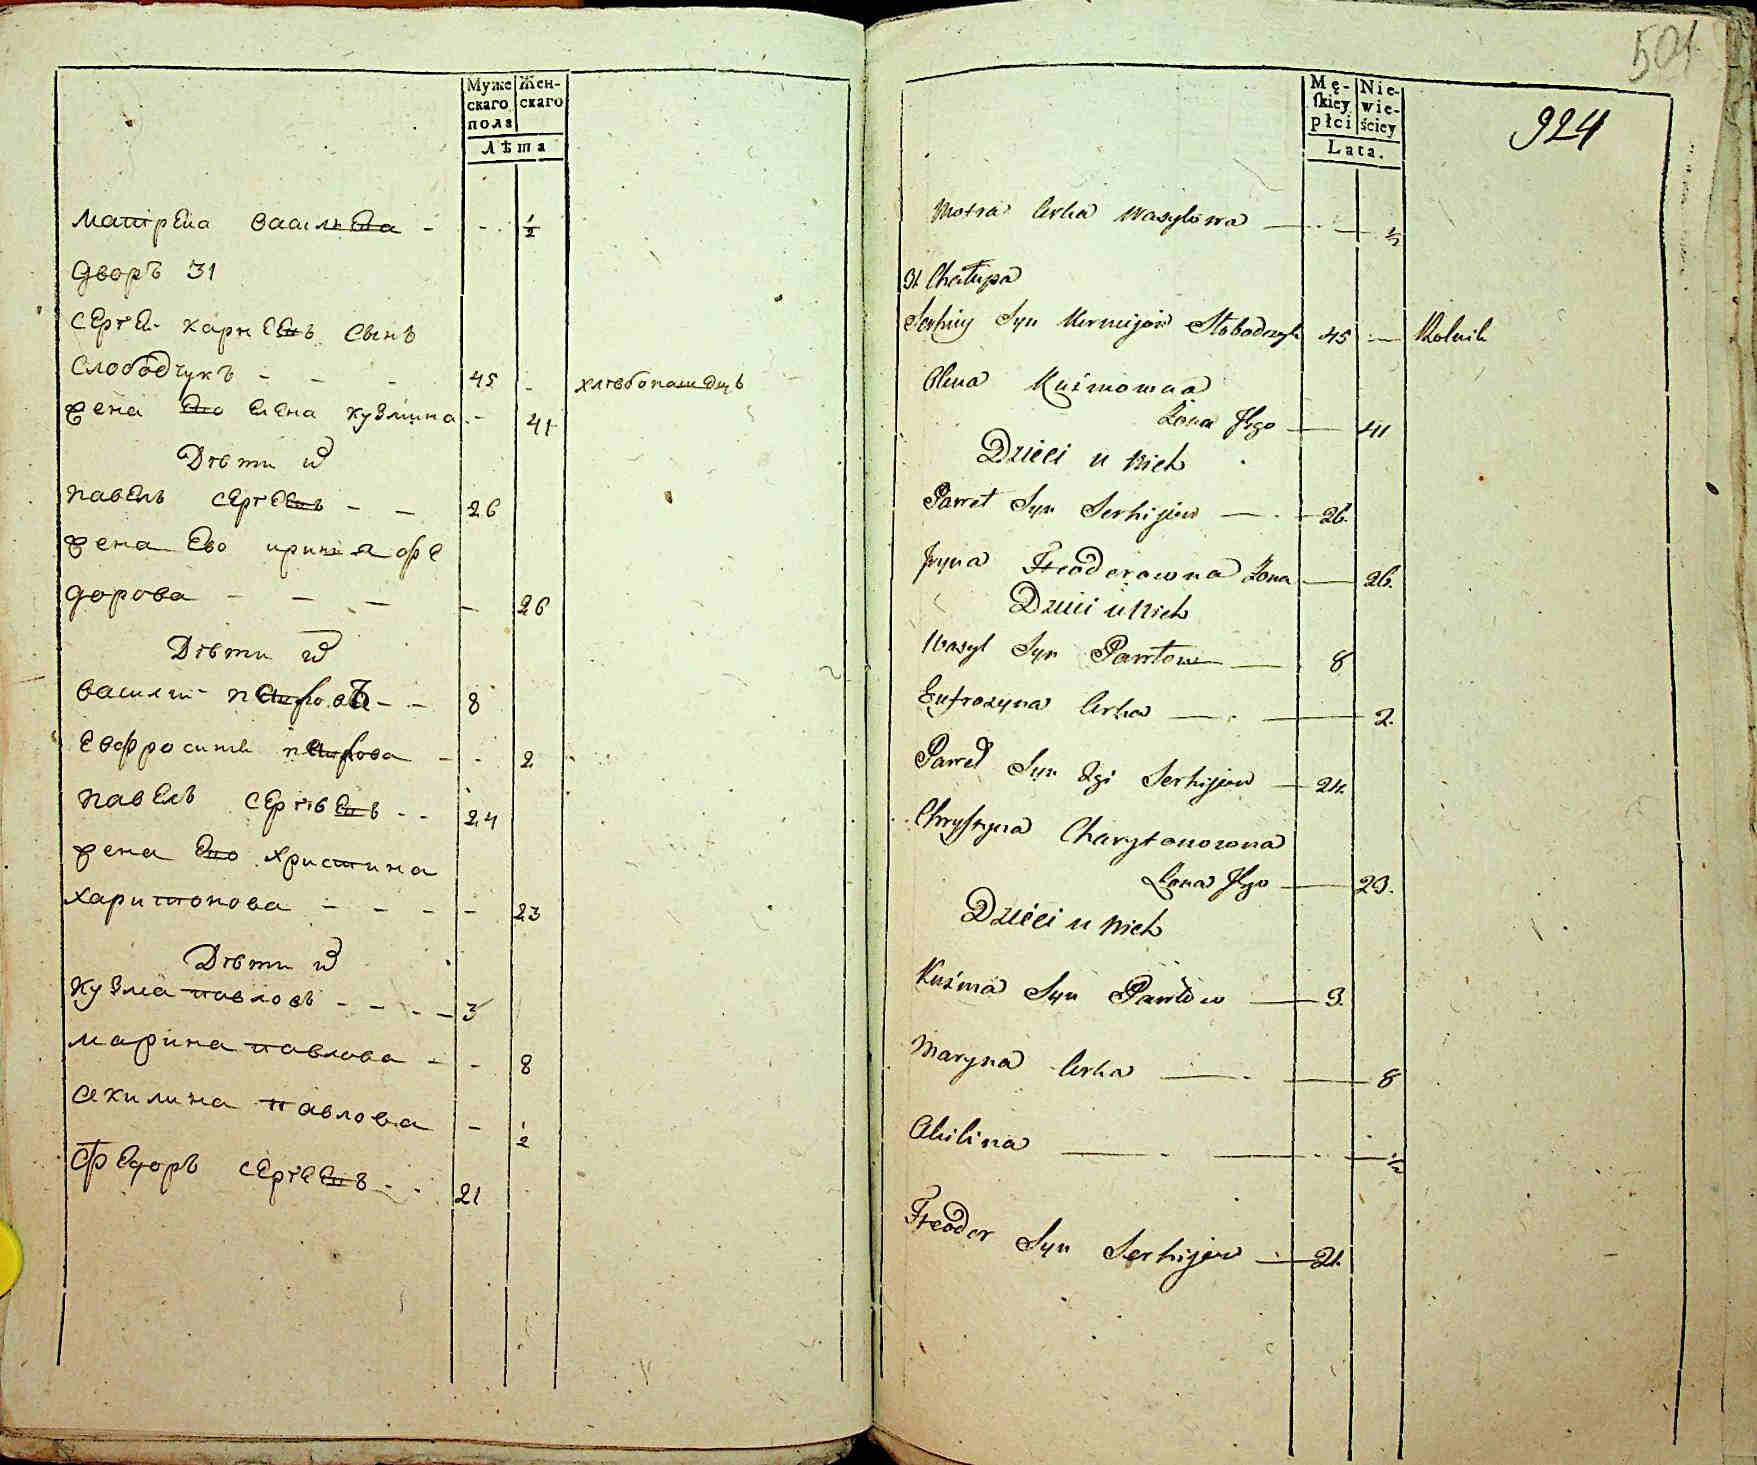 Муже
скаго
пола
Жен-
скаго
Лѣта
Матрена Василева - - - 1/2
Дворъ 31
Сергей Карнеевъ Сынъ
Слободчукъ - - - 45 - хлѣбопашецъ
жена Ево Елена Кузмина - - 41
Дѣти
Павелъ Сергеевъ - - 26
жена Ево Ирина Фе
дорова - - - - 26
Дѣти
Василий Павловъ - - 8
Евфросиня Павлова - - 2
Павелъ Сергѣевъ - - 24
жена Ево Христина
Харитонова - - - - 23
Дѣти
Кузма Павловъ - - - - 3
Марина Павлова - - 8
Акилина Павлова - 1/2
Федоръ Сергеевъ - - 21
501.
924
Mę-
skiey
płci
Nie-
wie-
ściey
Lata.
Motra Corka Wasylowa — — 1/2
31 Chałupa
Serhiey Syn Kerneijow Słobodczuk 45 — Rolnik
Olena Kuźmowna
Żona Jego — 41
Dzieci u nich
Paweł Syn Serhijew — 26.
Jryna Fteodorowna Żona — 26.
Dzieci u nich
Wasyl Syn Pawłow — 8
Eufrozyna Corka — — 2.
Paweł Syn 2gi Serhijew — 24.
Chrystyna Charytonowna
Żona Jego — 23.
Dzieci u nich
Kuźma Syn Pawłow — 3.
Maryna Corka — — 8
Akilina — — — 1/2
Fteodor Syn Serhijew — 21.